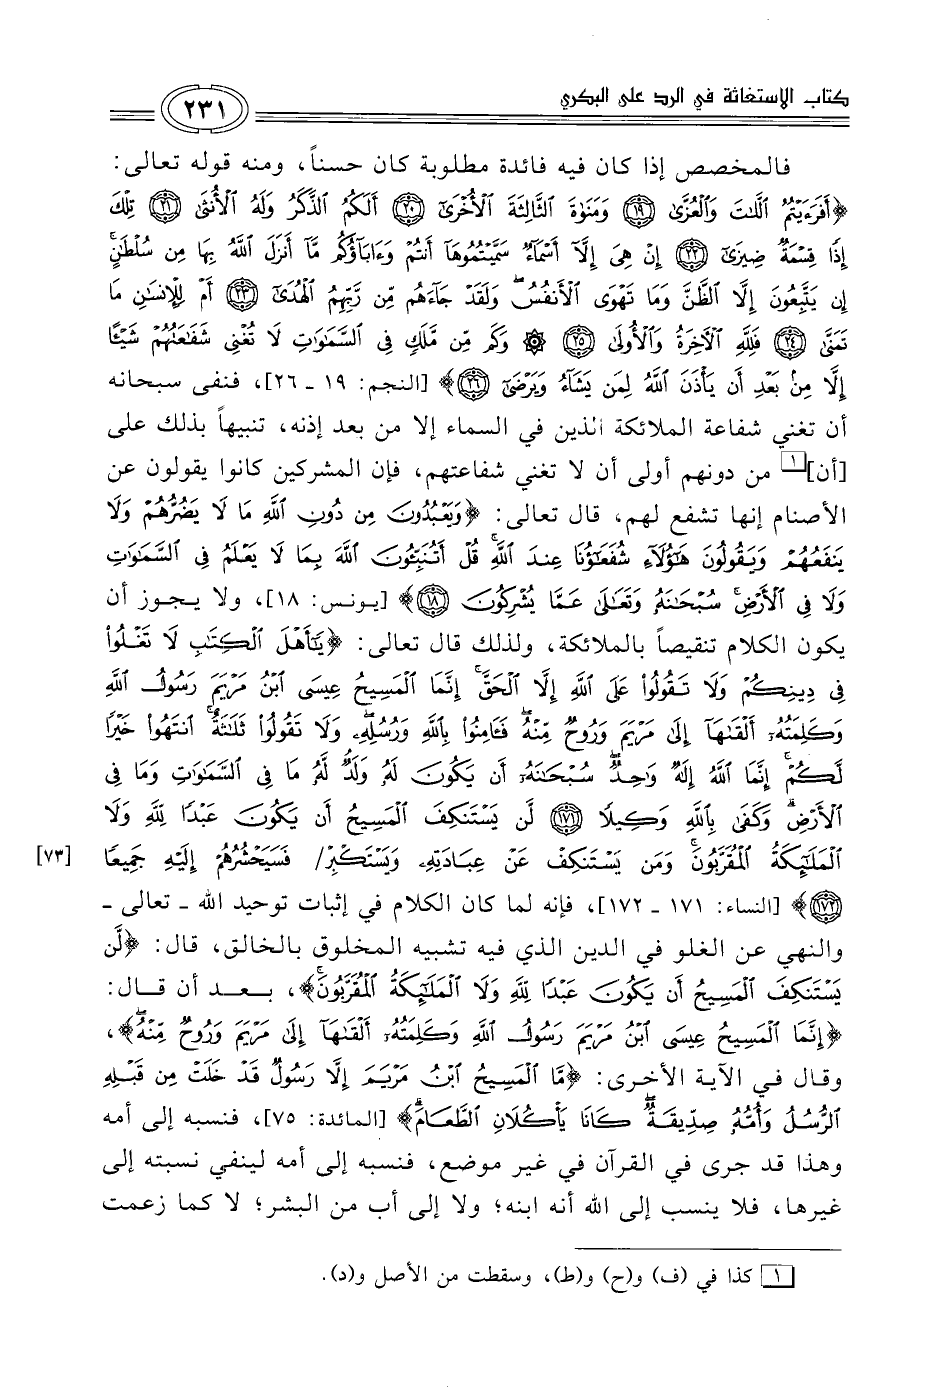 كتاب الإستغاثة في الرد على البكري
٢٣١
فالمخصص إذا كان فيه فائدة مطلوبة كان حسناً، ومنه قوله تعالى:
﴿أَفَرَءَيْتُمُ ٱللَّٰتَ وَٱلْعُزَّىٰ ﴿١٩﴾ وَمَنَوٰةَ ٱلثَّالِثَةَ ٱلْأُخْرَىٰٓ ﴿٢٠﴾ أَلَكُمُ ٱلذَّكَرُ وَلَهُ ٱلْأُنثَىٰ ﴿٢١﴾ تِلْكَ
إِذًا قِسْمَةٌ ضِيزَىٰٓ ﴿٢٢﴾ إِنْ هِىَ إِلَّآ أَسْمَآءٌ سَمَّيْتُمُوهَآ أَنتُمْ وَءَابَآؤُكُم مَّآ أَنزَلَ ٱللَّهُ بِهَا مِن سُلْطَٰنٍ ۚ
إِن يَتَّبِعُونَ إِلَّا ٱلظَّنَّ وَمَا تَهْوَى ٱلْأَنفُسُ ۖ وَلَقَدْ جَآءَهُم مِّن رَّبِّهِمُ ٱلْهُدَىٰٓ ﴿٢٣﴾ أَمْ لِلْإِنسَٰنِ مَا
تَمَنَّىٰ ﴿٢٤﴾ فَلِلَّهِ ٱلْـَٔاخِرَةُ وَٱلْأُولَىٰ ﴿٢٥﴾ ۞ وَكَم مِّن مَّلَكٍ فِى ٱلسَّمَٰوَٰتِ لَا تُغْنِى شَفَٰعَتُهُمْ شَيْـًٔا
إِلَّا مِنۢ بَعْدِ أَن يَأْذَنَ ٱللَّهُ لِمَن يَشَآءُ وَيَرْضَىٰٓ ﴿٢٦﴾﴾ [النجم: ١٩ ـ ٢٦]، فنفى سبحانه
أن تغني شفاعة الملائكة الذين في السماء إلا من بعد إذنه، تنبيهاً بذلك على
[أن]١ من دونهم أولى أن لا تغني شفاعتهم، فإن المشركين كانوا يقولون عن
الأصنام إنها تشفع لهم، قال تعالى: ﴿وَيَعْبُدُونَ مِن دُونِ ٱللَّهِ مَا لَا يَضُرُّهُمْ وَلَا
يَنفَعُهُمْ وَيَقُولُونَ هَٰٓؤُلَآءِ شُفَعَٰٓؤُنَا عِندَ ٱللَّهِ ۚ قُلْ أَتُنَبِّـُٔونَ ٱللَّهَ بِمَا لَا يَعْلَمُ فِى ٱلسَّمَٰوَٰتِ
وَلَا فِى ٱلْأَرْضِ ۚ سُبْحَٰنَهُۥ وَتَعَٰلَىٰ عَمَّا يُشْرِكُونَ ﴿١٨﴾﴾ [يونس: ١٨]، ولا يجوز أن
يكون الكلام تنقيصاً بالملائكة، ولذلك قال تعالى: ﴿يَٰٓأَهْلَ ٱلْكِتَٰبِ لَا تَغْلُوا۟
فِى دِينِكُمْ وَلَا تَقُولُوا۟ عَلَى ٱللَّهِ إِلَّا ٱلْحَقَّ ۚ إِنَّمَا ٱلْمَسِيحُ عِيسَى ٱبْنُ مَرْيَمَ رَسُولُ ٱللَّهِ
وَكَلِمَتُهُۥٓ أَلْقَىٰهَآ إِلَىٰ مَرْيَمَ وَرُوحٌ مِّنْهُ ۖ فَـَٔامِنُوا۟ بِٱللَّهِ وَرُسُلِهِۦ ۖ وَلَا تَقُولُوا۟ ثَلَٰثَةٌ ۚ ٱنتَهُوا۟ خَيْرًا
لَّكُمْ ۚ إِنَّمَا ٱللَّهُ إِلَٰهٌ وَٰحِدٌ ۖ سُبْحَٰنَهُۥٓ أَن يَكُونَ لَهُۥ وَلَدٌ ۘ لَّهُۥ مَا فِى ٱلسَّمَٰوَٰتِ وَمَا فِى
ٱلْأَرْضِ ۗ وَكَفَىٰ بِٱللَّهِ وَكِيلًا ﴿١٧١﴾ لَّن يَسْتَنكِفَ ٱلْمَسِيحُ أَن يَكُونَ عَبْدًا لِّلَّهِ وَلَا
ٱلْمَلَٰٓئِكَةُ ٱلْمُقَرَّبُونَ ۚ وَمَن يَسْتَنكِفْ عَنْ عِبَادَتِهِۦ وَيَسْتَكْبِرْ/ فَسَيَحْشُرُهُمْ إِلَيْهِ جَمِيعًا
[٧٣]
﴿١٧٢﴾﴾ [النساء: ١٧١ ـ ١٧٢]، فإنه لما كان الكلام في إثبات توحيد الله ـ تعالى ـ
والنهي عن الغلو في الدين الذي فيه تشبيه المخلوق بالخالق، قال: ﴿لَّن
يَسْتَنكِفَ ٱلْمَسِيحُ أَن يَكُونَ عَبْدًا لِّلَّهِ وَلَا ٱلْمَلَٰٓئِكَةُ ٱلْمُقَرَّبُونَ ۚ﴾، بعد أن قال:
﴿إِنَّمَا ٱلْمَسِيحُ عِيسَى ٱبْنُ مَرْيَمَ رَسُولُ ٱللَّهِ وَكَلِمَتُهُۥٓ أَلْقَىٰهَآ إِلَىٰ مَرْيَمَ وَرُوحٌ مِّنْهُ ۖ﴾،
وقال في الآية الأخرى: ﴿مَّا ٱلْمَسِيحُ ٱبْنُ مَرْيَمَ إِلَّا رَسُولٌ قَدْ خَلَتْ مِن قَبْلِهِ
ٱلرُّسُلُ وَأُمُّهُۥ صِدِّيقَةٌ ۖ كَانَا يَأْكُلَانِ ٱلطَّعَامَ ۗ﴾ [المائدة: ٧٥]، فنسبه إلى أمه
وهذا قد جرى في القرآن في غير موضع، فنسبه إلى أمه لينفي نسبته إلى
غيرها، فلا ينسب إلى الله أنه ابنه؛ ولا إلى أب من البشر؛ لا كما زعمت
١ كذا في (ف) و(ح) و(ط)، وسقطت من الأصل و(د).